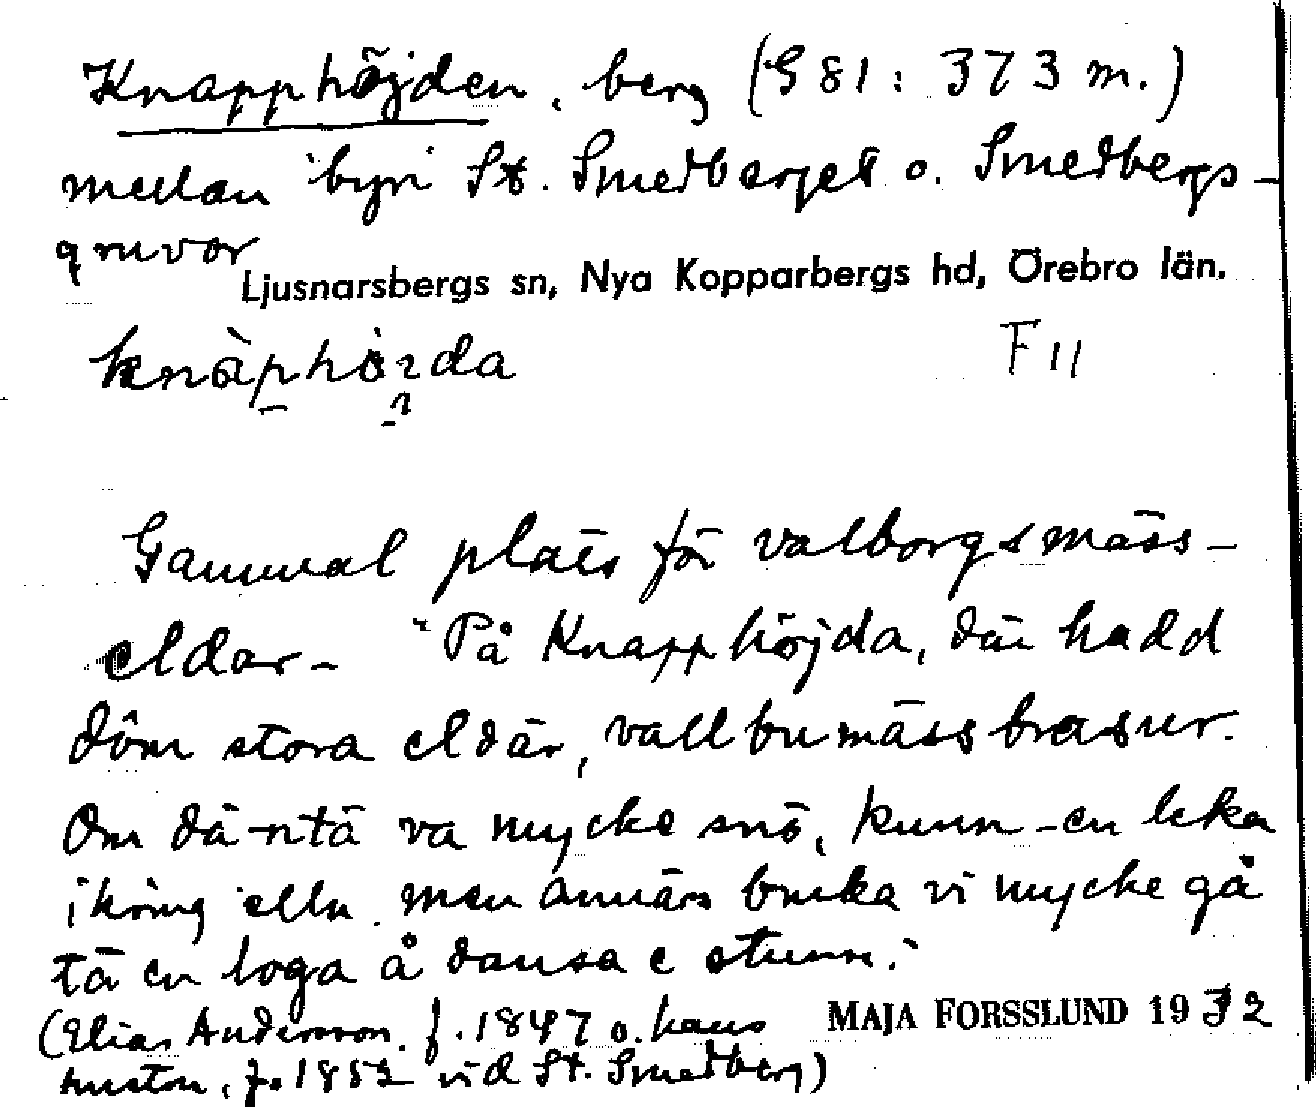 Knapphöjden, berg (G 81: 373 m.)
mellan byn St. Smedberget o. Smedbergs-
gruvor
Ljusnarsbergs sn, Nya Kopparbergs hd, Örebro län.
F 11
Gammal plats för valborgsmäss-
eldar - "På Knapphöjda, där hadd
dôm stora eldär, vallbumässbrasur.
Om dä-ntä va mycke snö, kunn-en leka
ikring elln men annärs bruka vi mycke gå
tä en loga å dansa e stunn."
(Elias Andersson f. 1847 o. hans
hustru, f. 1852 vid St. Smedberg)
MAJA FORSSLUND 1932